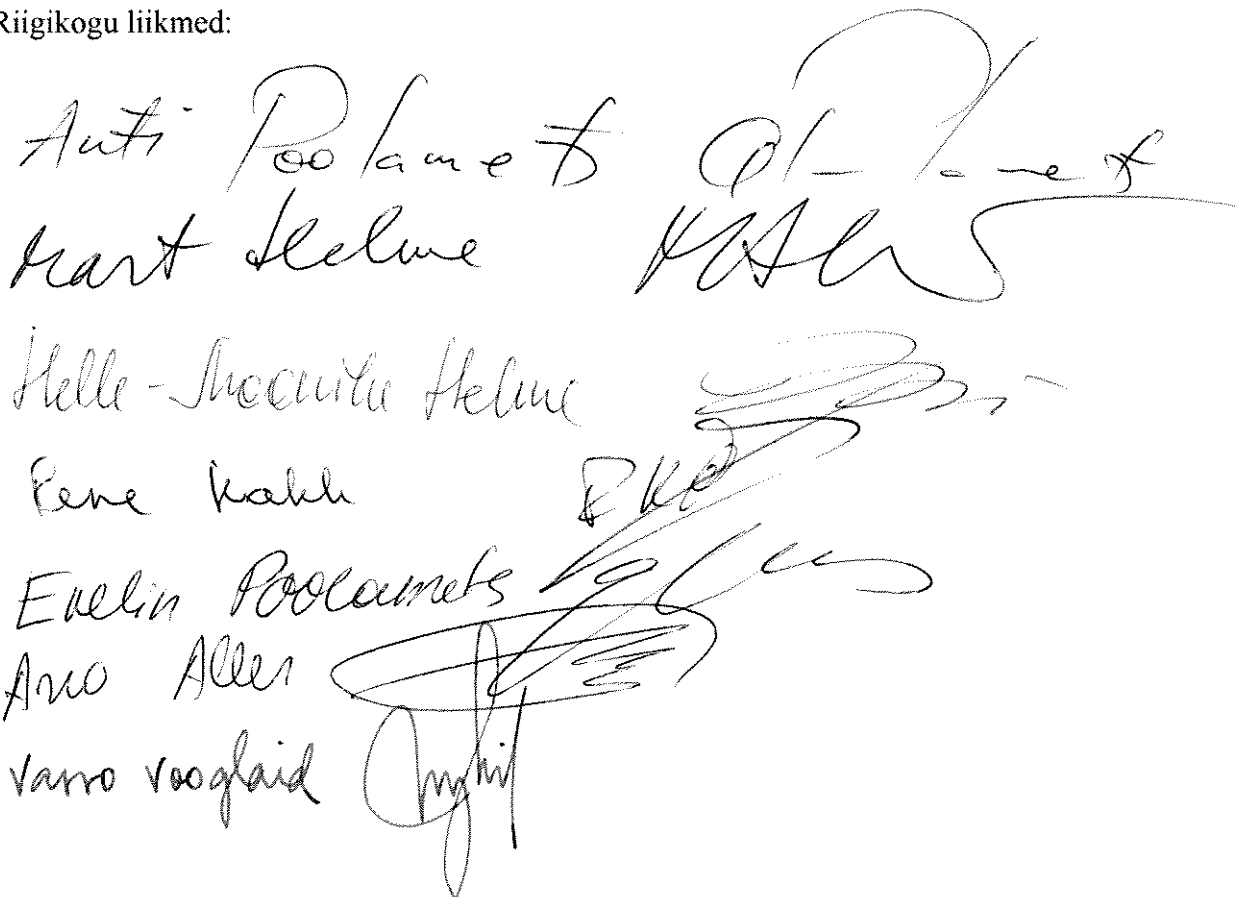 Riigikogu liikmed:
Anti Poolamets
Mart Helme
Helle-Moonika Helme
Rene Kokk
Evelin Poolamets
Arvo Aller
Varro Vooglaid